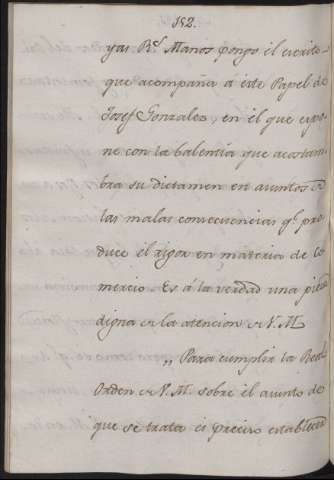 152.
yas R.s Manos pongo el escrito
que acompaña á éste Papel de
Josef Gonzalez, en él que expo
ne con la balentia que acostum
bra su dictamen en asuntos
las malas consecuencias q.e pro
duce él rigor en materia de Co
mercio. Es á la verdad una pieza
digna de la atencion de V. M.
,, Para cumplir la Real
Orden de V. M. sobre él asunto de
que se trata es preciso establecer